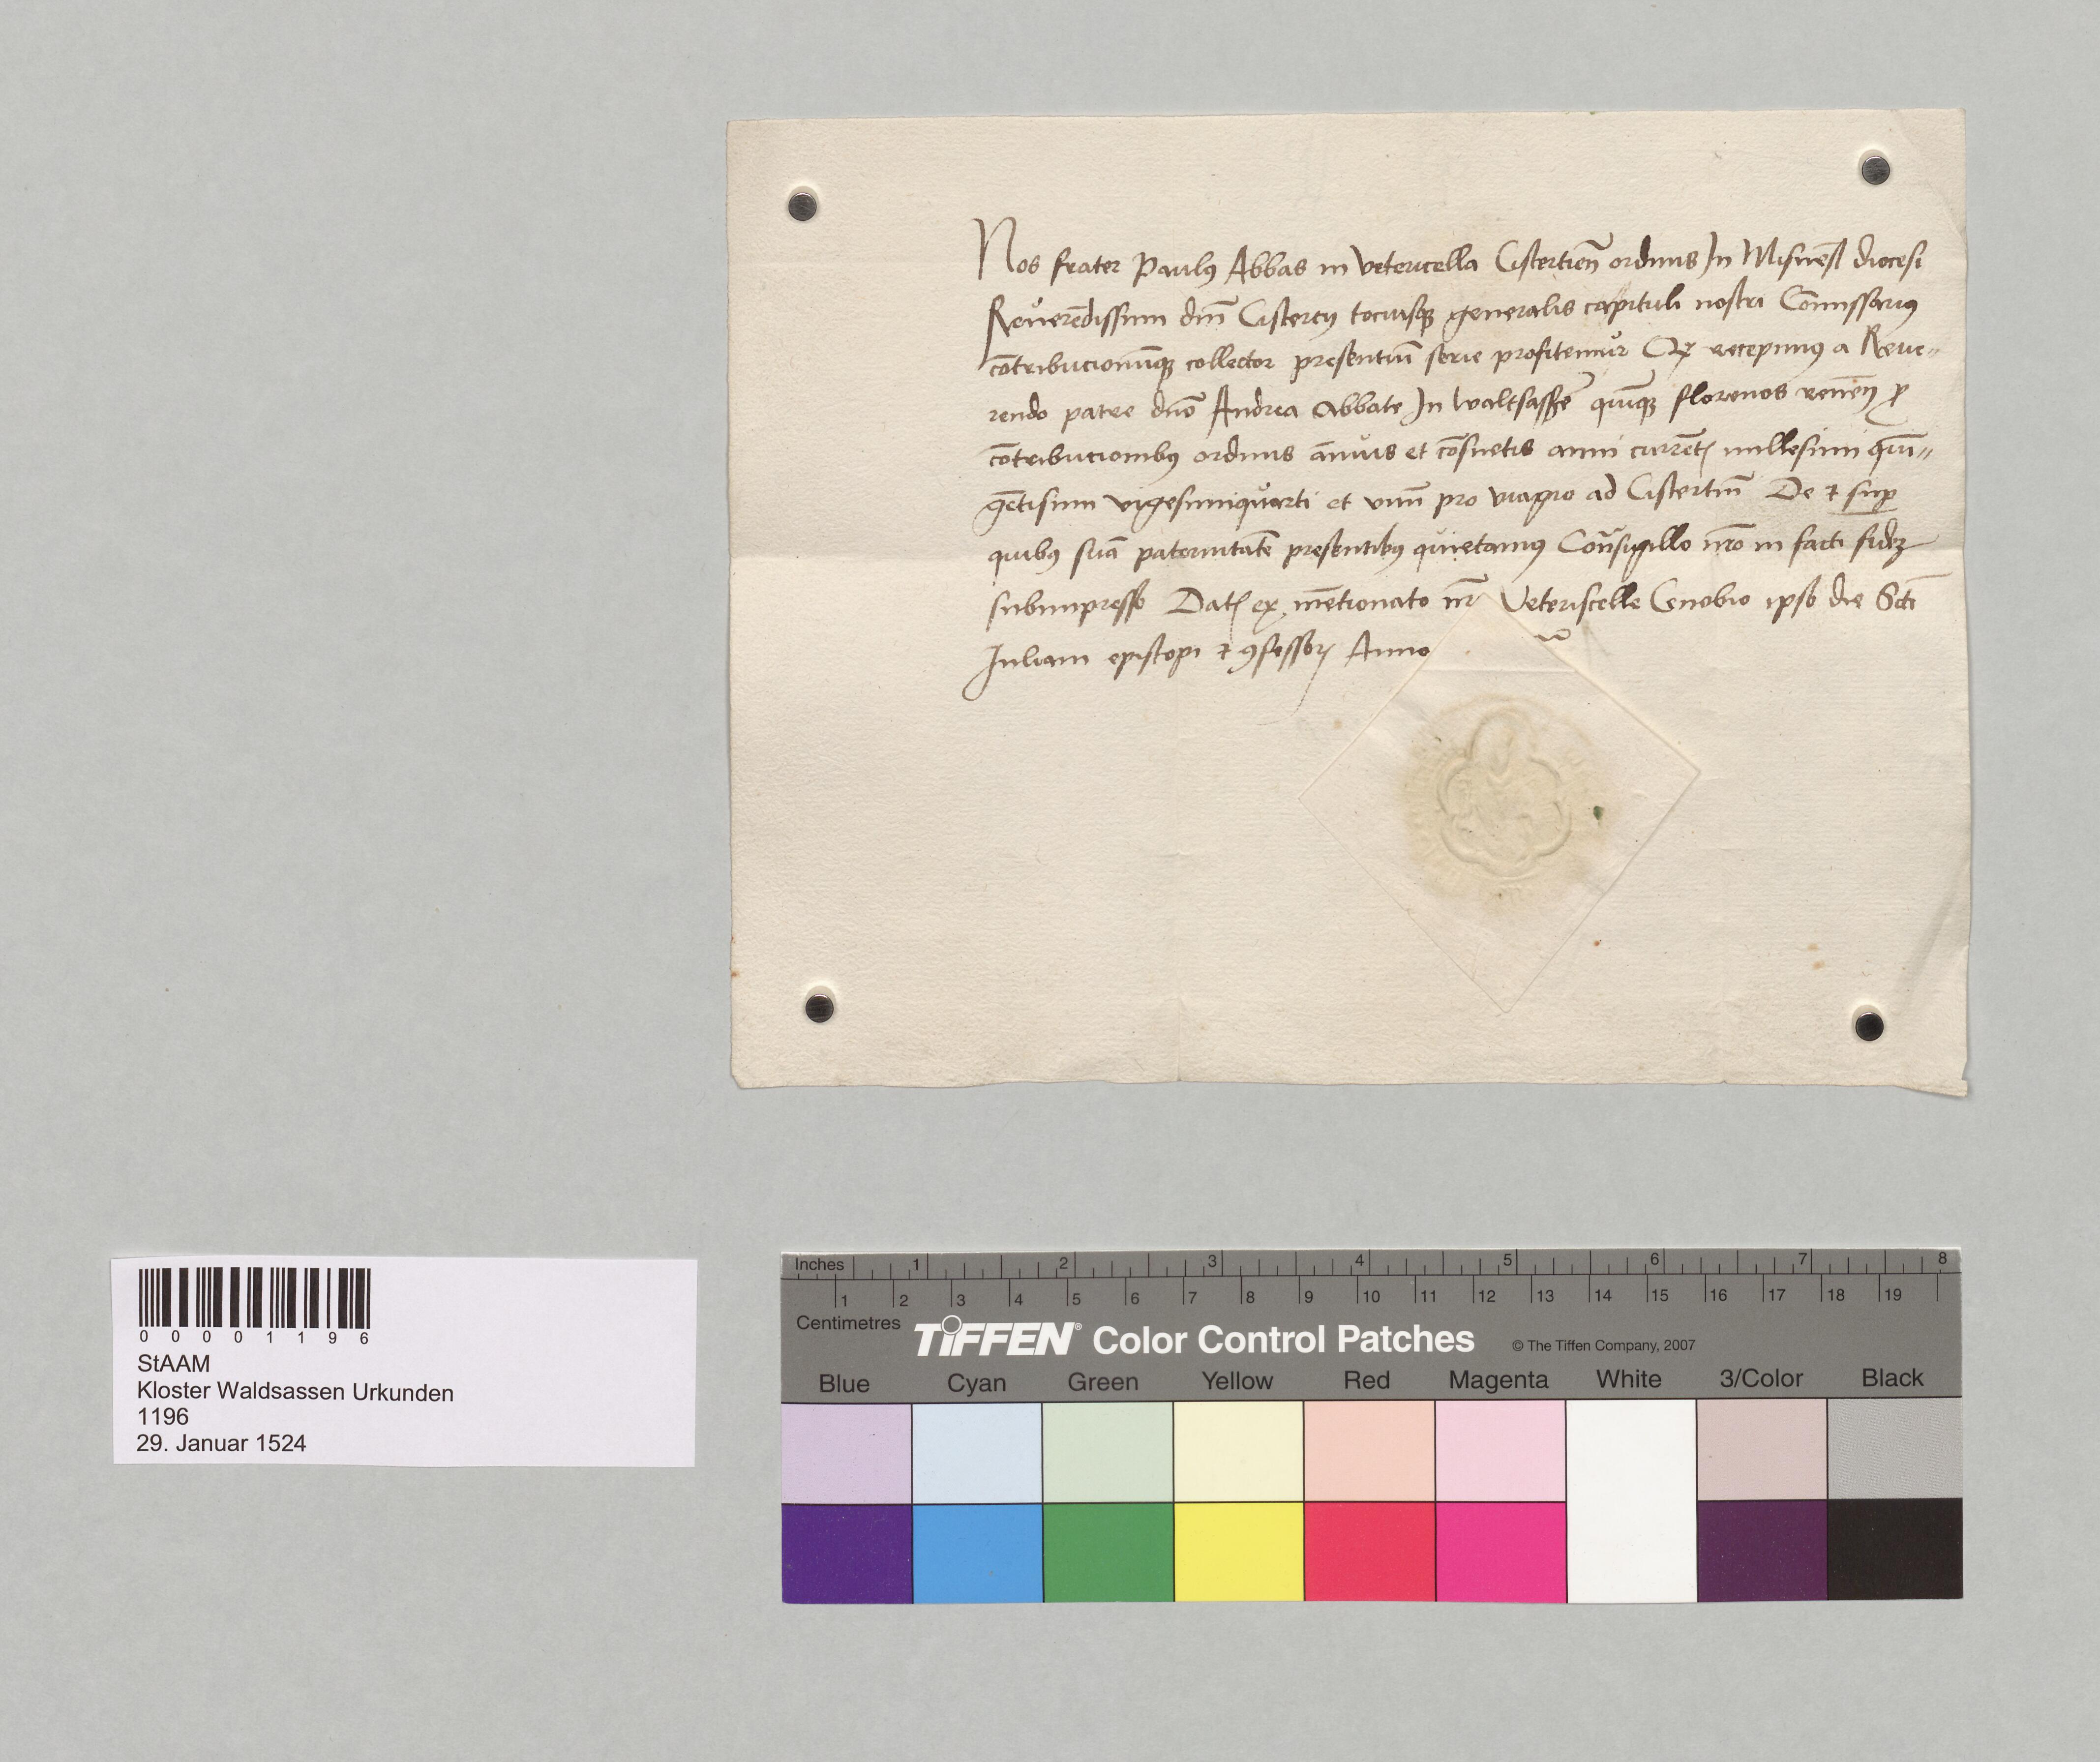 Nos frater Paulꝯ Abbas in Vetericella Cistertien̄ ordinis In Misnen̄ diocesi
Reuerēdissimi dn̄i Cistercij tociusqꝫ generalis capituli nostri Cōmissariꝯ
cōtribucionūqꝫ collector presentiū serie profitemur Qꝫ recepimꝯ a Reue〃
rendo patre dn̄o Andrea Abbate In Waltsassē quīqꝫ florenos renēn̄ ꝓ
cōtribucionibꝯ ordinis ānuis et cōsuetis anni currētꝭ millesimi quī〃
gētisimi vigesimiquarti et vnū pro viagio ad Cistertiū De ⁊ suꝑ
quibꝯ suā paternitatē presentibꝯ quietamꝯ Cōnsigillo nr̄o in facti fidēꝫ
subimpresso Datꝭ ex mētionato nr̄ Veteriscelle Cenobio ipso die Scti
Juliani episcopi ⁊ ꝯfessorꝭ Anno
0 0 0 0 1 1 9 6
StAAM
Kloster Waldsassen Urkunden
1196
29. Januar 1524
Inches 1 2 3 4 5 6 7 8
1 2 3 4 5 6 7 8 9 10 11 12 13 14 15 16 17 18 19
Centimetres
TIFFEN® Color Control Patches © The Tiffen Company, 2007
Blue Cyan Green Yellow Red Magenta White 3/Color Black